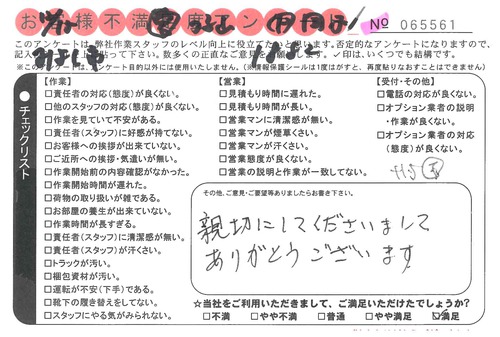 お客様不満足度アンケート
No 065561
このアンケートは、弊社作業スタッフのレベル向上に役立てたいと思います。否定的なアンケートになりますので、
記入 下さい。数多くの正直なご意見を します。✓印は、いくつでも結構です。
(※このアンケートは、アンケート目的以外には使用いたしません。)(※情報保護シールは1度はがすと、再度貼りなおすことはできません)
チェックリスト
【作業】
□責任者の対応(態度)が良くない。
□他のスタッフの対応(態度)が良くない。
□作業を見ていて不安がある。
□責任者(スタッフ)に好感が持てない。
□お客様への挨拶が出来ていない。
□ご近所への挨拶・気遣いが無い。
□作業開始前の内容確認がなかった。
□作業開始時間が遅れた。
□荷物の取り扱いが雑である。
□お部屋の養生が出来ていない。
□作業時間が長すぎる。
□責任者(スタッフ)に清潔感が無い。
□責任者(スタッフ)が汗くさい。
□トラックが汚い。
□梱包資材が汚い。
□運転が不安(下手)である。
□靴下の履き替えをしてない。
□スタッフにやる気がみられない。
【営業】
□見積もり時間に遅れた。
□見積もり時間が長い。
□営業マンに清潔感が無い。
□営業マンが煙草くさい。
□営業マンが汗くさい。
□営業態度が良くない。
□営業の説明と作業が一致してない。
【受付・その他】
□電話の対応が良くない。
□オプション業者の説明
・作業が良くない。
□オプション業者の対応
(態度)が良くない。
その他、ご意見・ご要望等ありましたらお書き下さい。
親切にしてくださいまして
ありがとうございます
☆当社をご利用いただきまして、ご満足いただけたでしょうか?
□不満 □やや不満 □普通 □やや満足 ☑満足